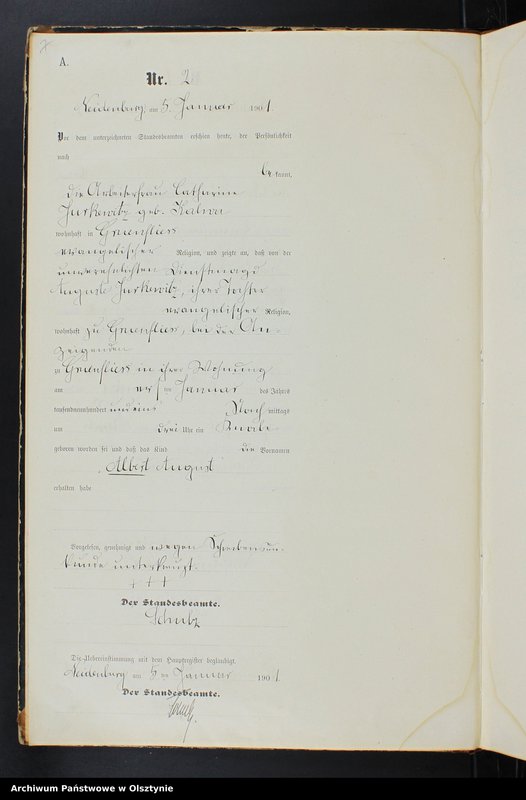 A.
Nr. 2
Neidenburg, am 5. Januar 1901.
Vor dem unterzeichneten Standesbeamten erschien heute, der Persönlichkeit
nach
be kannt,
die Arbeiterfrau Catharine
Jurkewitz geb. Kaliwa
wohnhaft in Gruenfliess
evangelischer Religion, und zeigte an, daß von der
unverehelichten Dienstmagd
Auguste Jurkewitz, ihrer Tochter
evangelischer Religion,
wohnhaft zu Gruenfliess, bei der An-
zeigenden
zu Gruenfliess in ihrer Wohnung
am ersten Januar des Jahres
tausendneunhundert und eins Nach mittags
um drei Uhr ein Knabe
geboren worden sei und daß das Kind die Vornamen
Albert August
erhalten habe
Vorgelesen, genehmigt und wegen Schreibensun-
kunde unterkreuzt.
+ + +
Der Standesbeamte.
Schulz
Die Uebereinstimmung mit dem Hauptregister beglaubigt.
Neidenburg am 5 ten Januar 1901.
Der Standesbeamte.
Schulz.
Archiwum Państwowe w Olsztynie